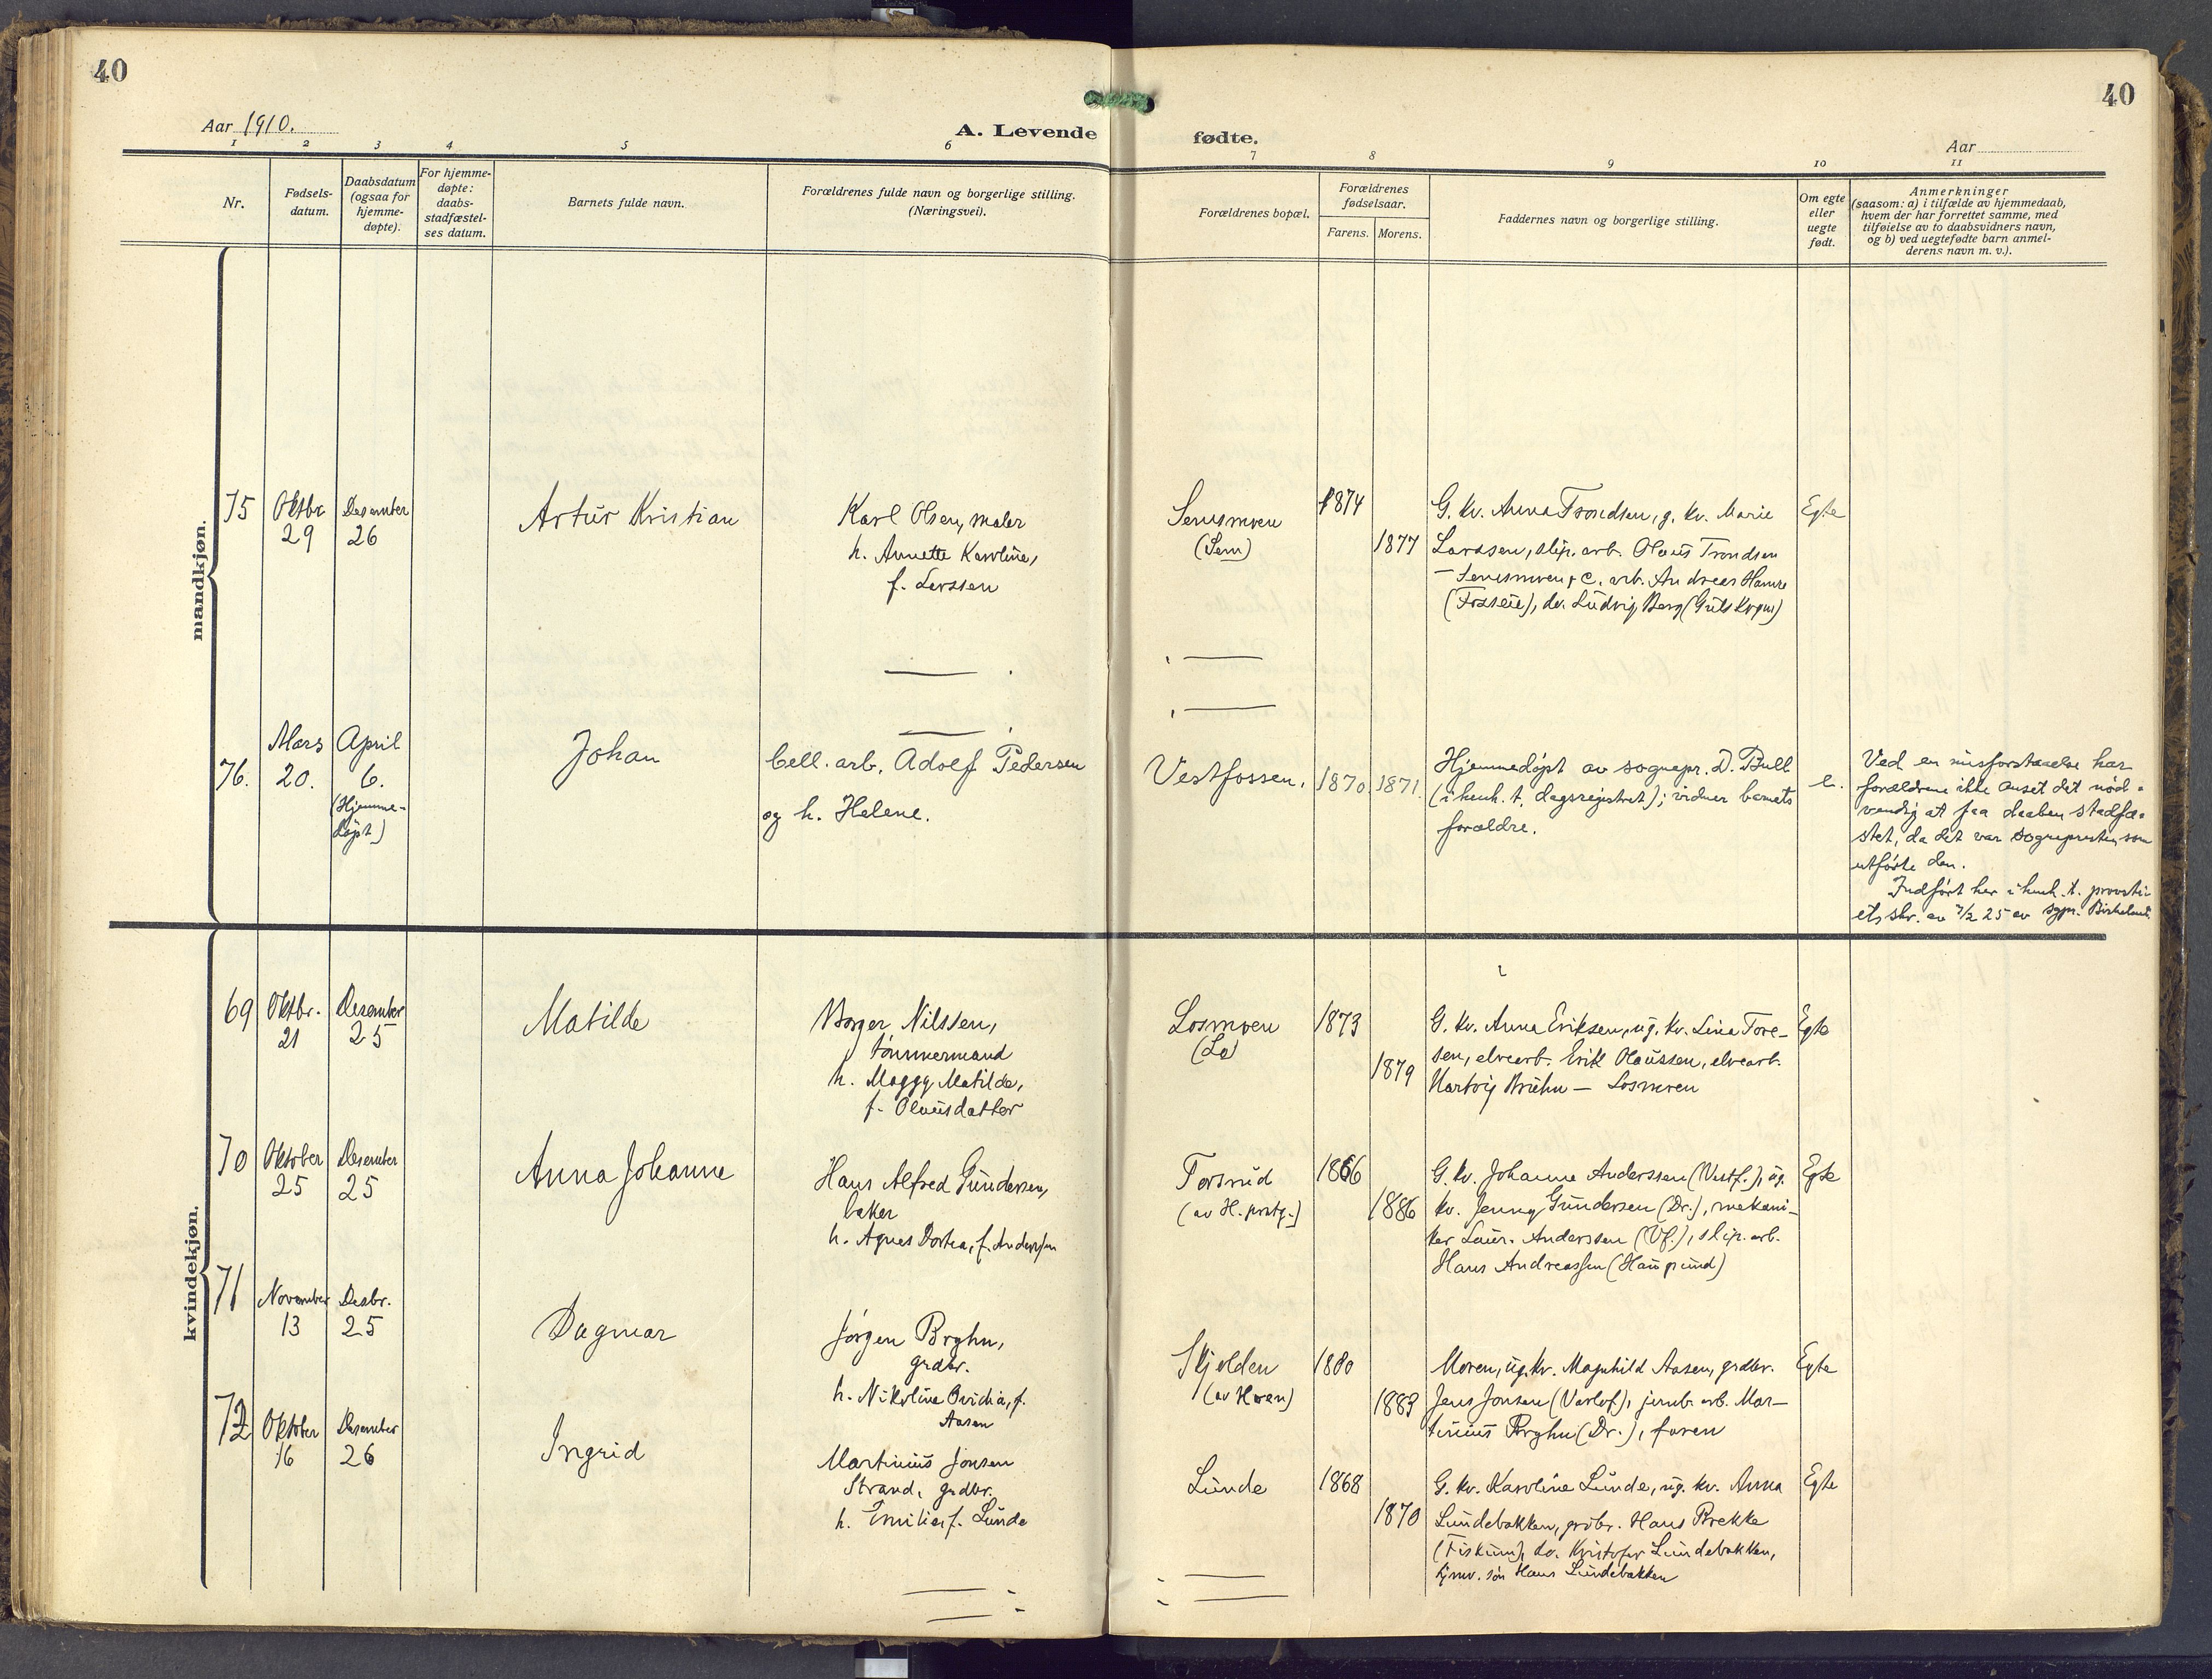 40
40
Aar 1910.
A. Levende fødte.
Aar
1 2 3 4 5 6 7 8 9 10 11
Nr.
Fødsels-
datum.
Daabsdatum
(ogsaa for
hjemme-
døpte).
For hjemme-
døpte:
daabs-
stadfæstel-
ses datum.
Barnets fulde navn.
Forældrenes fulde navn og borgerlige stilling.
(Næringsvei).
Forældrenes bopæl.
Forældrenes
fødselsaar.
Farens. Morens.
Faddernes navn og borgerlige stilling.
Om egte
eller
uegte
født.
Anmerkninger
(saasom: a) i tilfælde av hjemmedaab,
hvem der har forrettet samme, med
tilføielse av to daabsvidners navn,
og b) ved uegtefødte barn anmel-
derens navn m. v.).
mandkjøn.
75
Oktbr.
29
Desember
26
Artur Kristian
Karl Olsen, maler
h. Annette Karoline,
f. Larssen
Semsmoen
(Sem)
1874
1877
G. kv. Anna Trondsen, g. kv. Marie
Larssen, slip. arb. Olaus Trondsen
– Semsmoen, c. arb. Andreas Hamre
(Fosseie), do. Ludvig Berg
Egte
76.
Mars
20.
April
6.
(Hjemme-
døpt)
Johan
Cell. arb. Adolf Pedersen
og h. Helene.
Vestfossen.
1870
1871
Hjemmedøpt av sognepr. D. Bull
(i henh. t. dagsregistret); vidner barnets
forældre.
e.
Ved en misforstaaelse har
forældrene ikke anset det nød-
vendig at faa daaben stadfæ-
stet, da det var sognepresten som
utførte den.
Indført her i henh. t. provsti-
ets skr. av 7/2 25 av sgpr.
kvindekjøn.
69
Oktbr.
21
Desember
25
Matilde
Borger Nilssen,
tømmermand
h. Maggy Matilde,
f. Olausdatter
Losmoen
(Lo)
1873
1879
G. kv. Anna Eriksen, ug. kv. Lina Tore-
sen, elvearb. Erik Olaussen, elvearb.
Hartvig Bruhn – Losmoen
Egte
70
Oktober
25
Desember
25
Anna Johanne
Hans Alfred Gundersen,
baker
h. Agnes Dortea, f. Anderssen
Forsrud
(av H. prstg.)
1866
1886
G. kv. Johanne Anderssen (Vestf.), ug.
kv. Jenny Gundersen (Dr.), mekani-
ker Laur. Anderssen (Vf.), slip. arb.
Hans Andreassen
Egte
71
November
13
Desbr.
25
Dagmar
Jørgen Bryhn,
grdbr.
h. Nikoline Ovidia, f.
Aasen
Skjolden
(av Hoen)
1880
1883
Moren, ug. kv. Magnhild Aasen, grdbr.
Jens Jonsen (Varlof), jernb. arb. Mar-
tinius Bryhn (Dr.), faren
Egte
72
Oktober
16
Desember
26
Ingrid
Martinius Jonsen
Strand, grdbr.
h. Emilie, f. Lunde
Lunde
1868
1870
G. kv. Karoline Lunde, ug. kv. Anna
Lundebakken, grdbr. Hans Brekke
(Fiskum), do. Kristofer Lundebakken,
grdbr. søn Hans Lundebakken
Egte